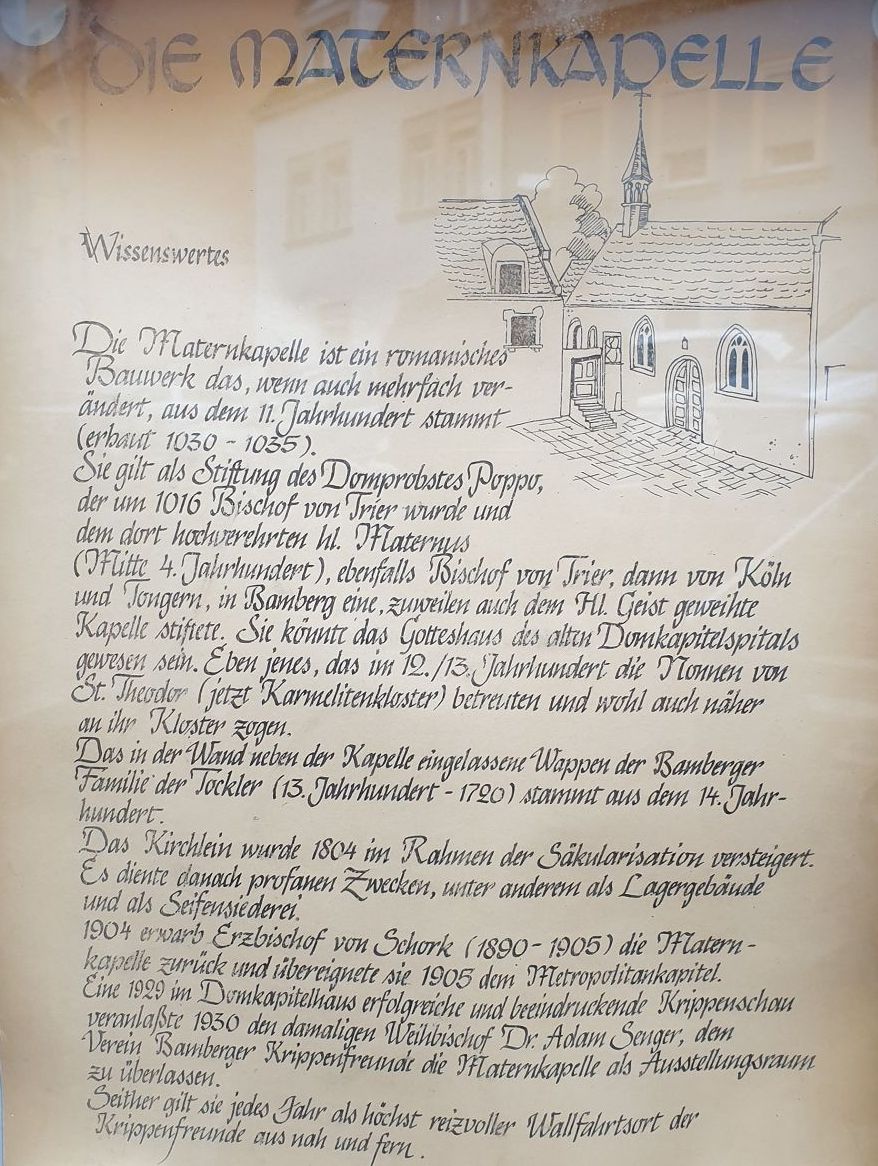 DIE MATERNKAPELLE
Wissenswertes
Die Maternkapelle ist ein romanisches
Bauwerk das, wenn auch mehrfach ver-
ändert, aus dem 11. Jahrhundert stammt
(erbaut 1030 - 1035).
Sie gilt als Stiftung des Domprobstes Poppo,
der um 1016 Bischof von Trier wurde und
dem dort hochverehrten hl. Maternus
(Mitte 4. Jahrhundert), ebenfalls Bischof von Trier, dann von Köln
und Tongern, in Bamberg eine, zuweilen auch dem Hl. Geist geweihte
Kapelle stiftete. Sie könnte das Gotteshaus des alten Domkapitelspitals
gewesen sein. Eben jenes, das im 12./13. Jahrhundert die Nonnen von
St. Theodor (jetzt Karmelitenkloster) betreuten und wohl auch näher
an ihr Kloster zogen.
Das in der Wand neben der Kapelle eingelassene Wappen der Bamberger
Familie der Tockler (13. Jahrhundert - 1720) stammt aus dem 14. Jahr-
hundert.
Das Kirchlein wurde 1804 im Rahmen der Säkularisation versteigert.
Es diente danach profanen Zwecken, unter anderem als Lagergebäude
und als Seifensiederei.
1904 erwarb Erzbischof von Schork (1890 - 1905) die Matern-
kapelle zurück und übereignete sie 1905 dem Metropolitankapitel.
Eine 1929 im Domkapitelhaus erfolgreiche und beeindruckende Krippenschau
veranlaßte 1930 den damaligen Weihbischof Dr. Adam Senger, dem
Verein Bamberger Krippenfreunde die Maternkapelle als Ausstellungsraum
zu überlassen.
Seither gilt sie jedes Jahr als höchst reizvoller Wallfahrtsort der
Krippenfreunde aus nah und fern.